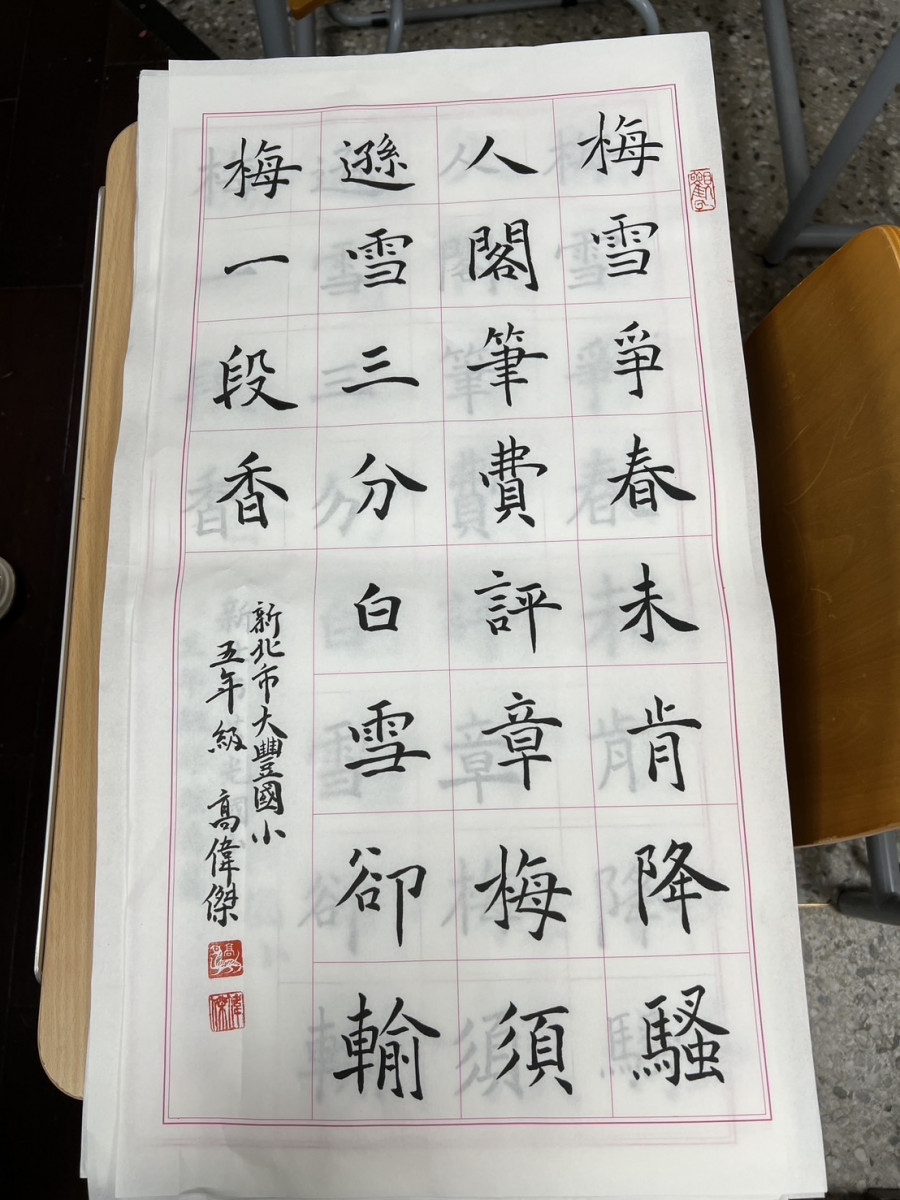 梅雪爭春未肯降騷
人閣筆費評章梅須
遜雪三分白雪卻輸
梅一段香
新北市大豐國小
五年級 高偉傑